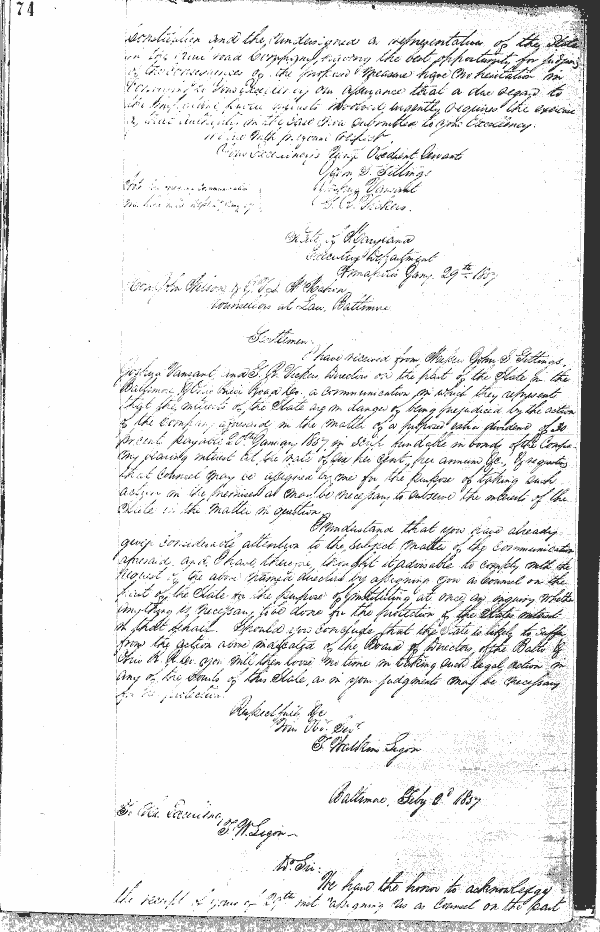 74
Constitution and the undersigned as representatives of the State
in the Rail road Company, having the best opportunity for judging
of the consequences of the proposed measure have no hesitation in
your Excellency our assurance that a due regard to
the important interests involved urgently requires the exercise
of that authority
We are with profound respect
Your Excellency's Very Obedient Servants
John S. Gittings
Joshua Vansant
S. R. Vickers
State of Maryland
Executive Department
Annapolis Jany. 29th 1857
Counsellors at Law, Baltimore
Gentlemen:
I have received from Messrs John S Gittings,
Joshua Vansant, and S. R. Vickers Directors on the part of the State in the
Baltimore & Ohio Rail Road Co. a communication in which they represent
that the interests of the State are in danger of being prejudiced by the action
of the Company aforesaid, in the matter of a proposed extra dividend of 30
percent payable January 1857 in Scrip fundable in bonds of the Compa-
ny bearing interest at the rate of six per cent, per annum &c. & request
that counsel may be assigned by me for the purpose of taking such
action in the premises as may be necessary to subserve the interest of the
State in the matter in question.
I understand that you have already
given considerable attention to the subject matter of the communication
aforesaid and I have therefore, thought it advisable to comply with the
request of the above named directors by assigning you as Counsel on the
part of the State for the purpose of instituting at once, an inquiry whether
anything is necessary to be done for the protection of the States interest
in that behalf. Should you conclude that the State is likely to suffer
from the action above indicated of the Board of Directors, of the Balto &
Ohio R. R. Co. you will then loose no time in taking such legal action in
any of the Courts of this State, as in your judgments may be necessary
for its protection.
Respectfully &c
Your Obt. Sevt.
T. Watkins Ligon
Baltimore, Feby 2d 1857
To His Excellency
T. W. Ligon
Dr Sir:
We have the honor to acknowledge
the receipt of yours of 29th inst assigning us as Counsel on the part